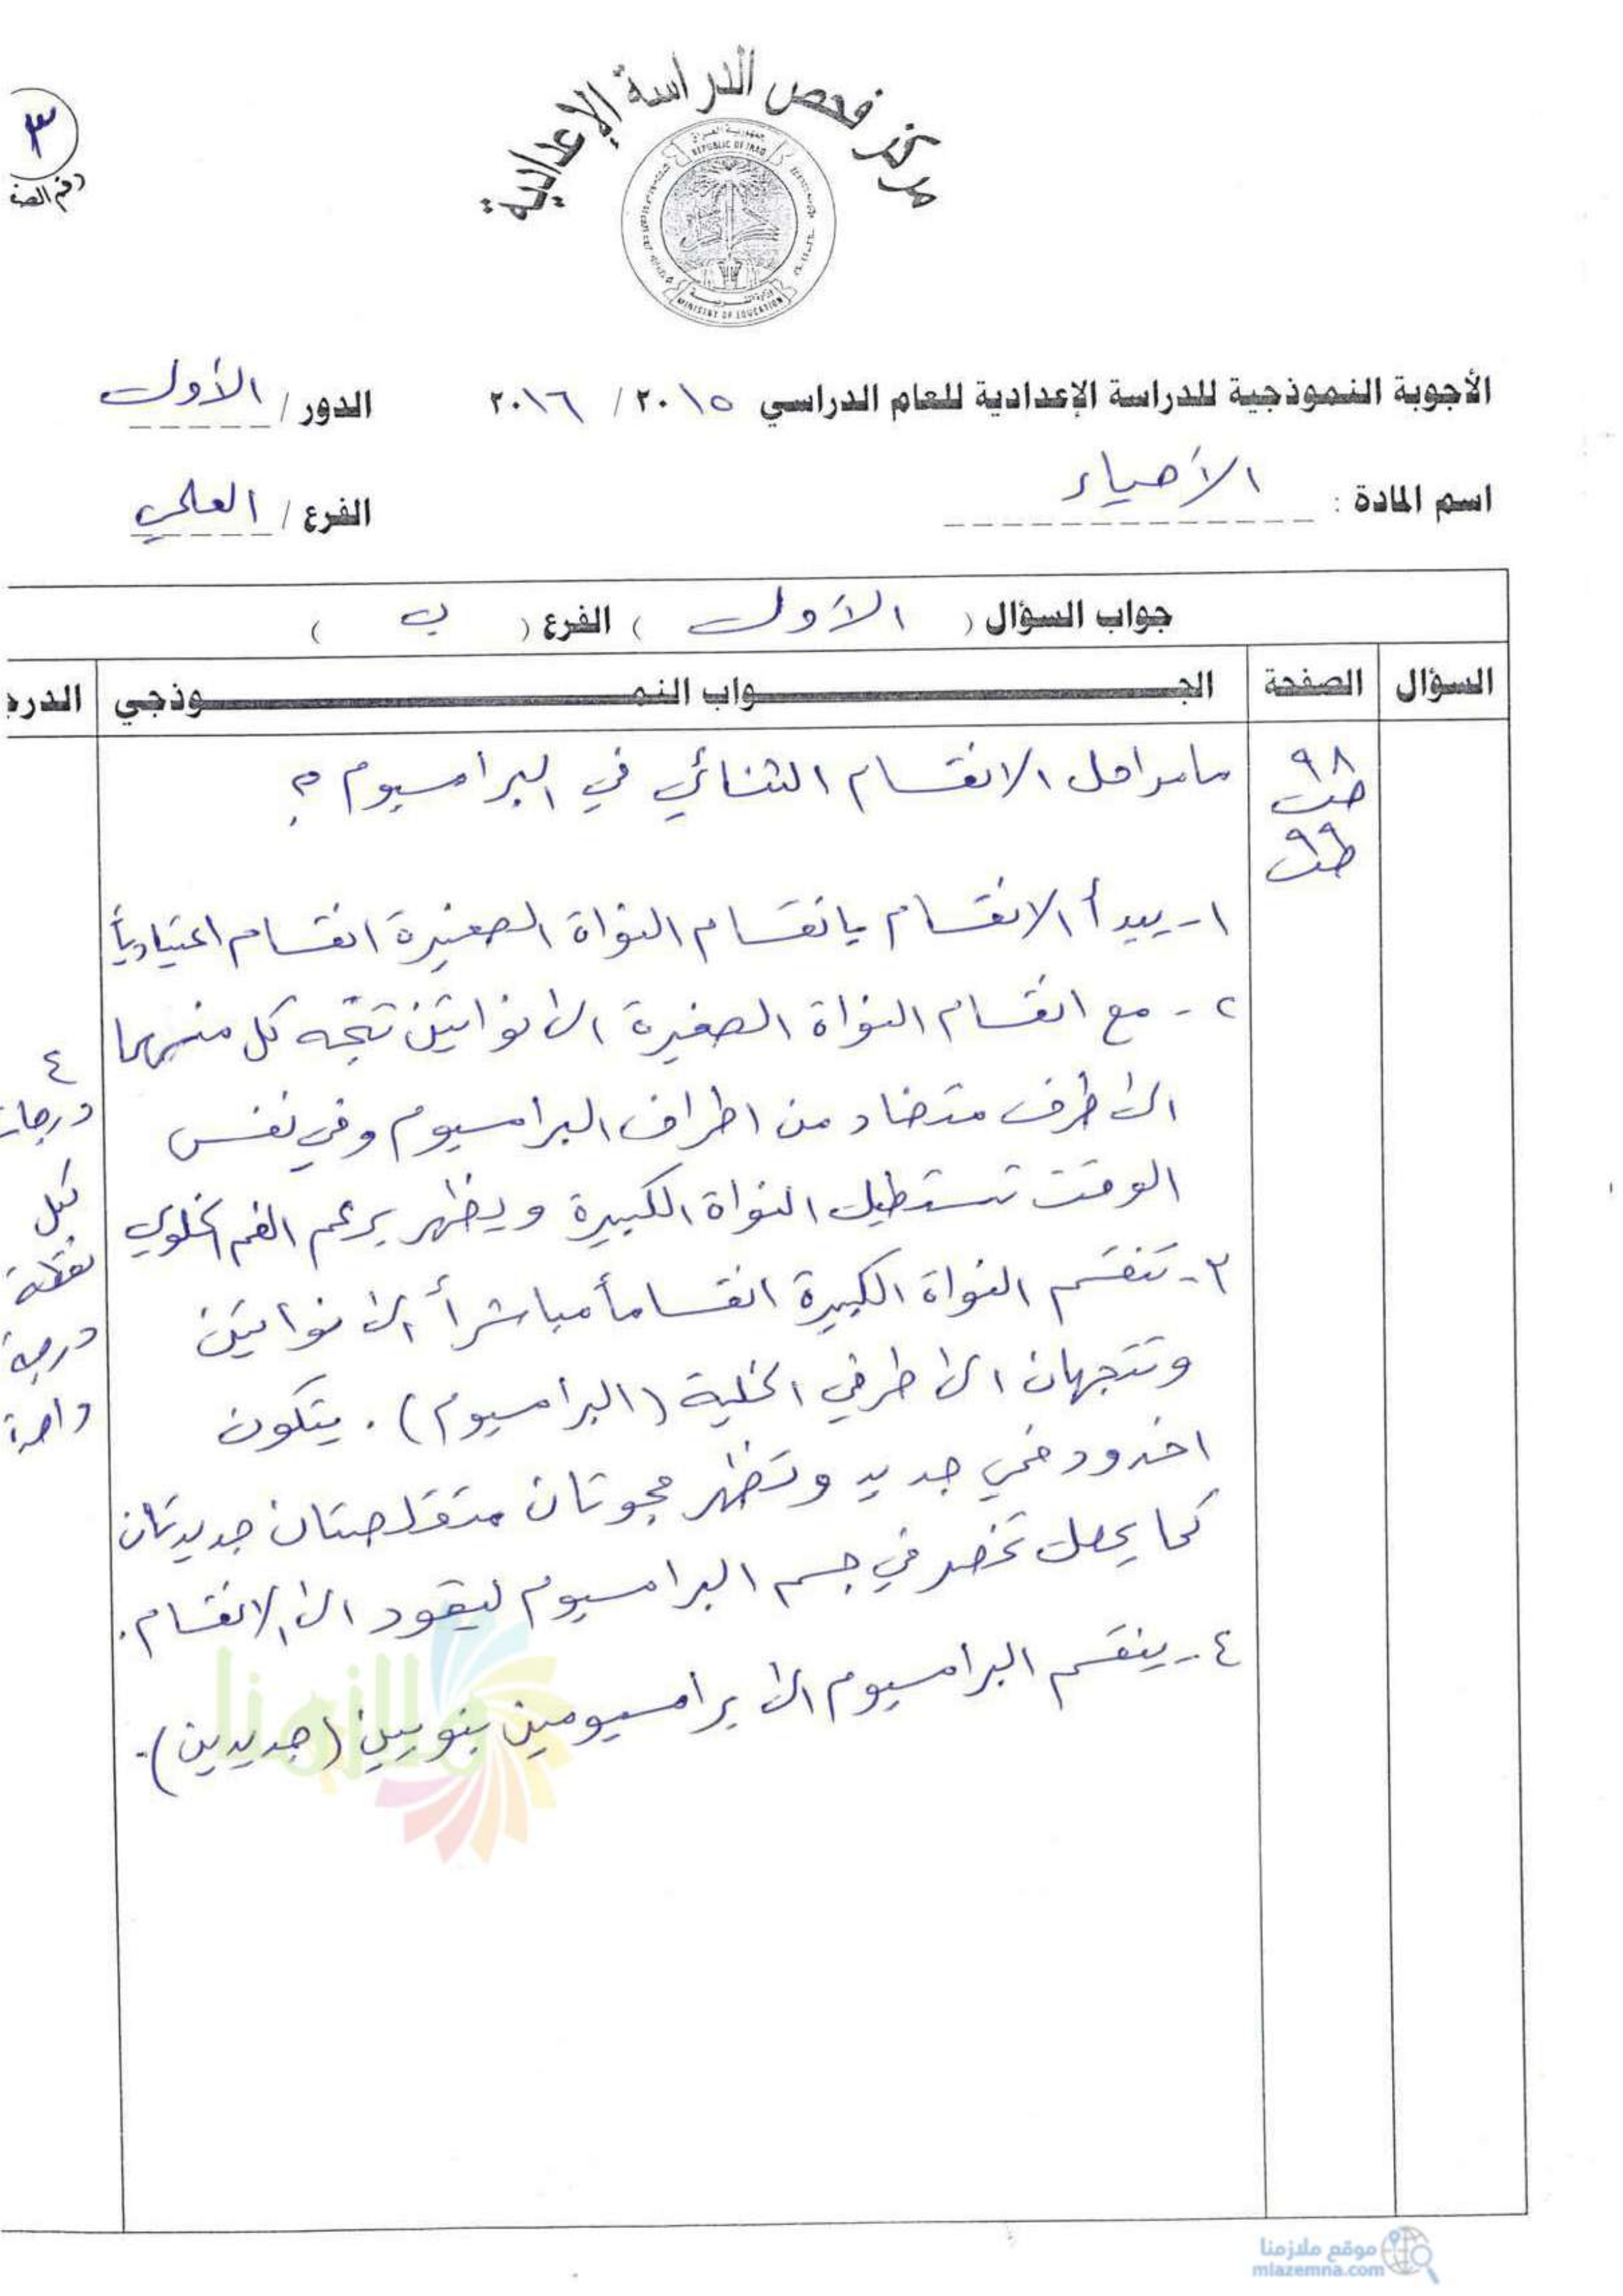 مركز فحص الدراسة الإعدادية
جمهورية العراق
REPUBLIC OF IRAQ
وزارة التربية
MINISTRY OF EDUCATION
٣
رقم الصف
الأجوبة النموذجية للدراسة الإعدادية للعام الدراسي ٢٠١٥ / ٢٠١٦ الدور / الأول
اسم المادة : الأحياء الفرع / العلمي
جواب السؤال ( الأول ) الفرع ( ب )
السؤال الصفحة الجـــواب النمـــوذجي الدرج
ما مراحل الانقسام الثنائي في البراميسيوم ؟
٩٨
٩٩
١- يبدأ الانقسام بانقسام النواة الصغيرة انقسام اعتيادياً
٢- مع انقسام النواة الصغيرة الى نواتين تتجه كل منهما
الى طرف متضاد من اطراف البرامسيوم وفي نفس
الوقت تستطيل النواة الكبيرة ويظهر برعم الفم الخلوي
٣- تنقسم النواة الكبيرة انقساماً مباشراً الى نواتين
وتتجهان الى طرفي الخلية (البرامسيوم). يتكون
اخدود فمي جديد وتظهر فجوتان متقلصتان جديدتان
كما يحصل تخصر في جسم البرامسيوم ليقود الى الانقسام.
٤- ينقسم البرامسيوم الى برامسيومين بنويين (جديدين).
٤
درجات
لكل
نقطة
درجة
واحدة
ملازمنا
موقع ملازمنا
mlazemna.com